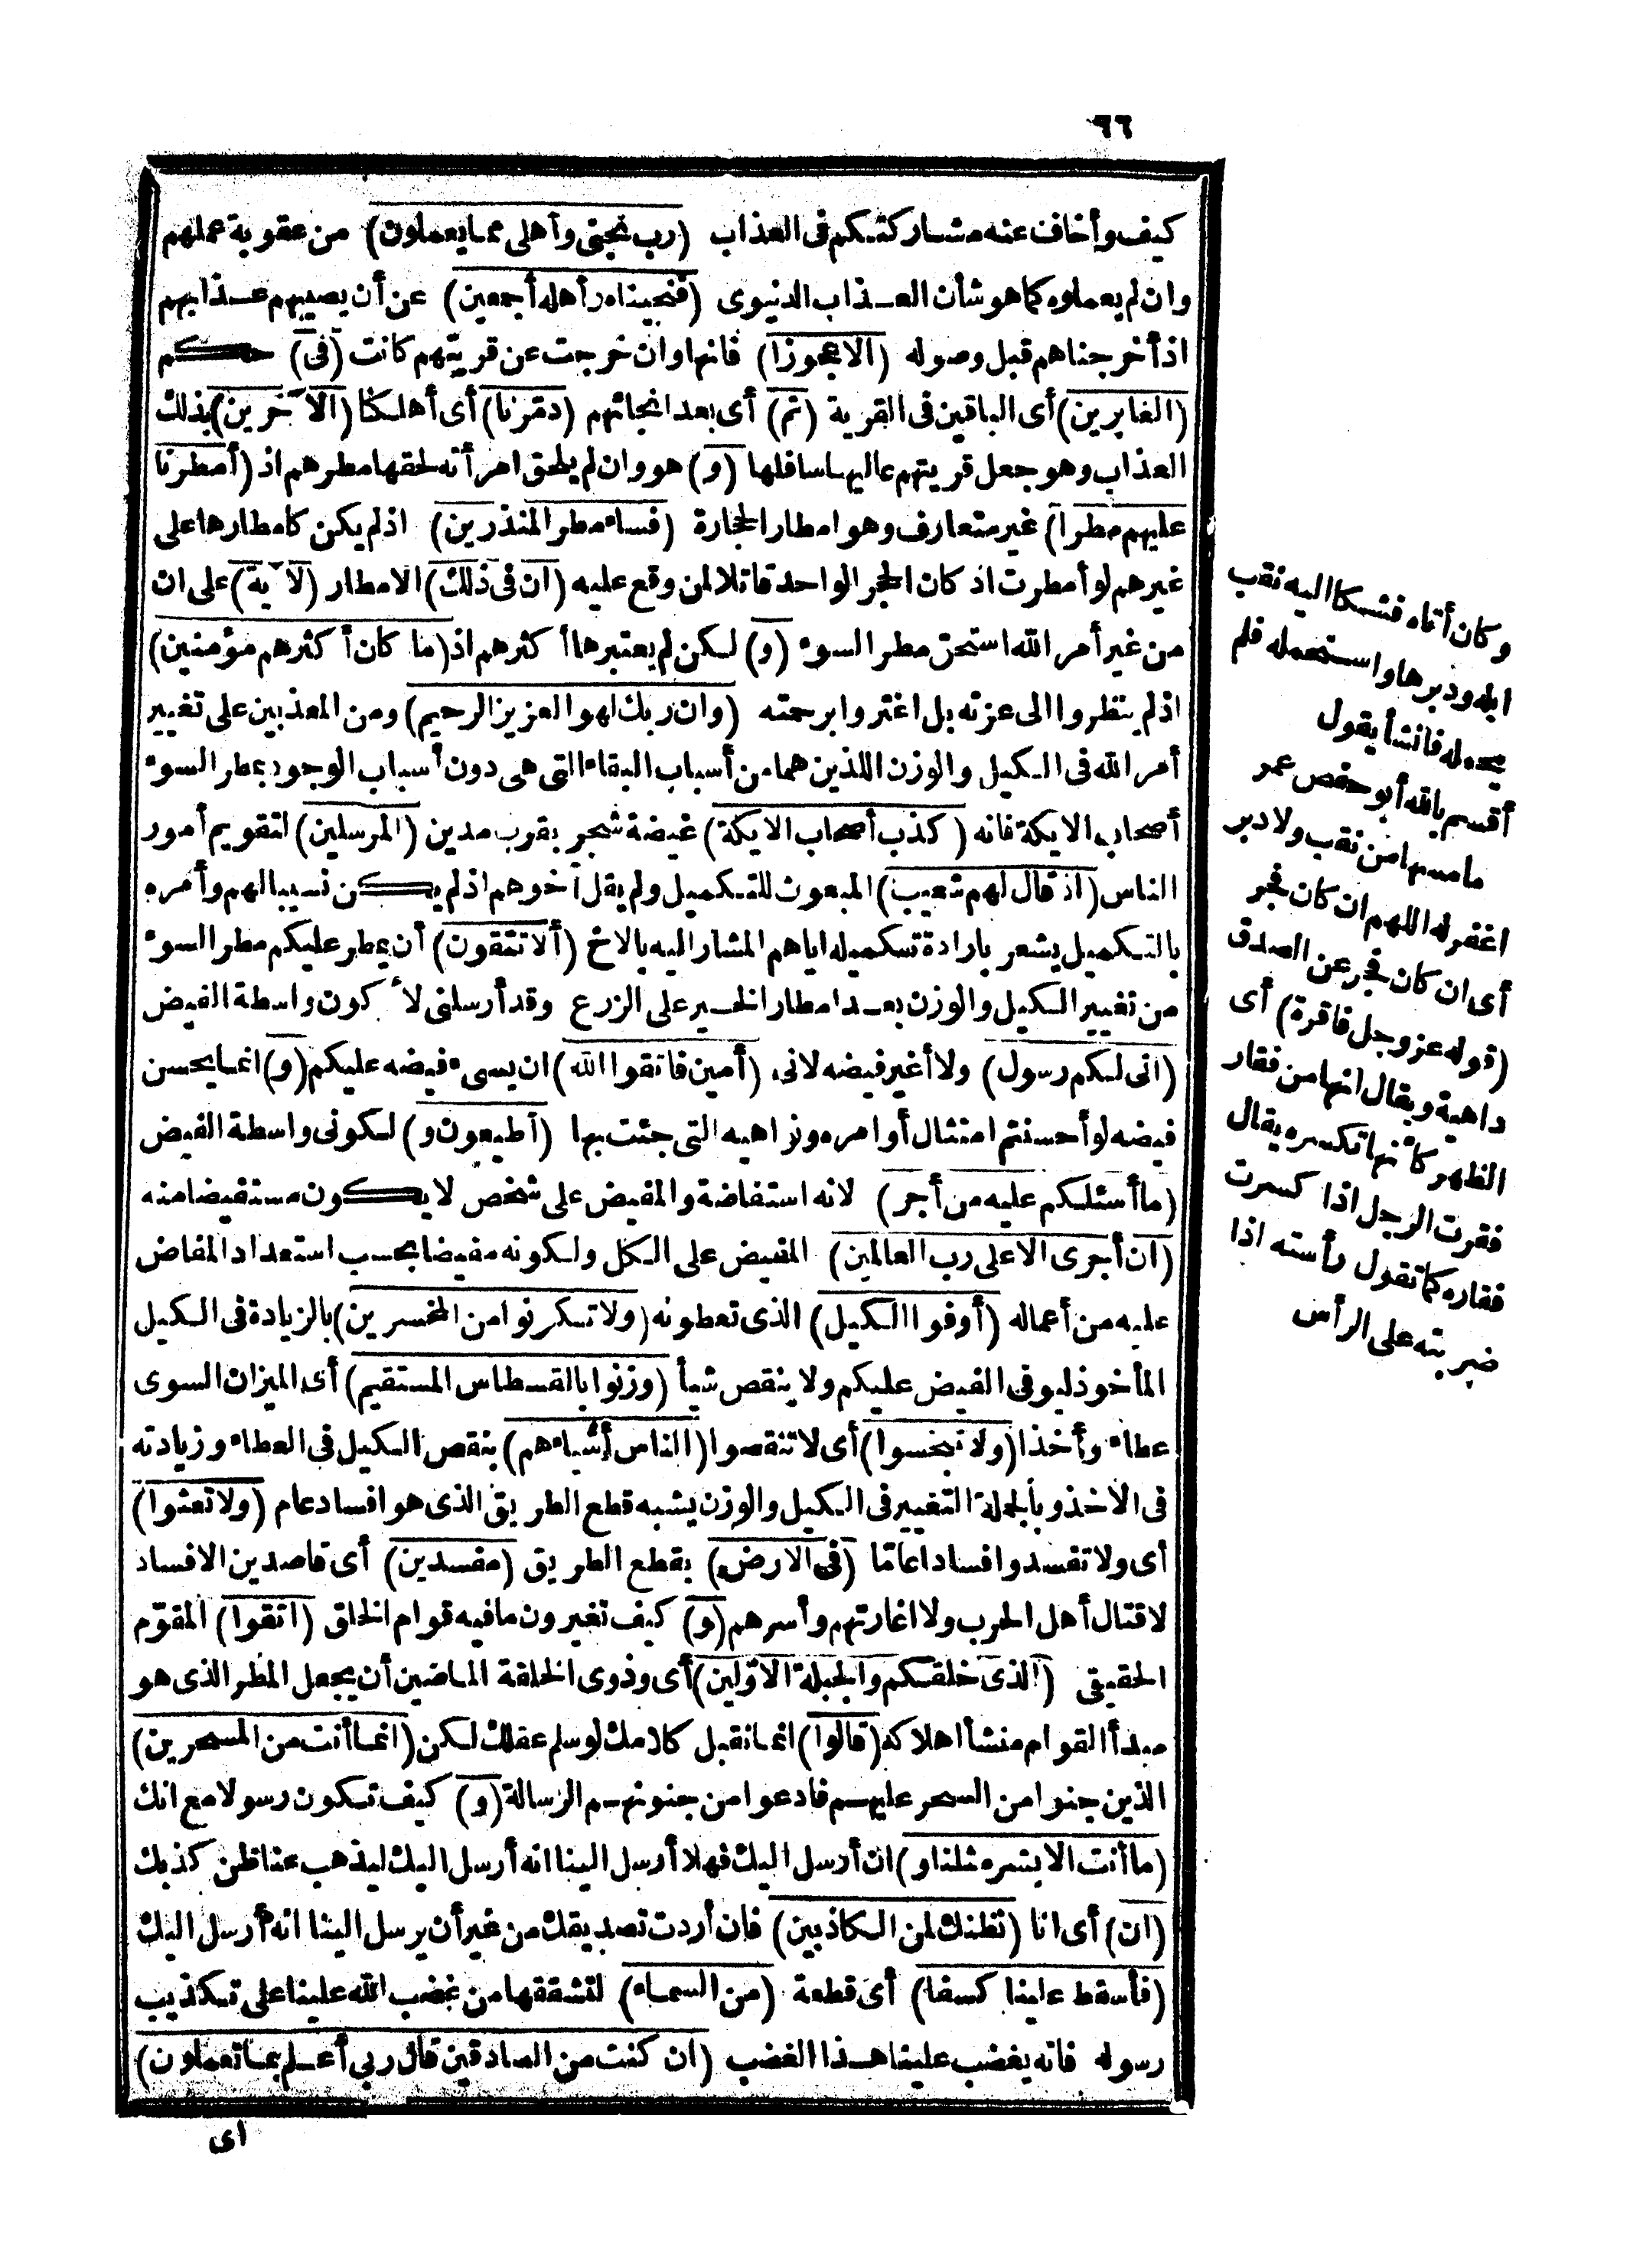 ٦٦
كيف وأخاف عنه مشاركتكم فى العذاب (رب نجنى وأهلى مما يعملون) من عقوبة عملهم
وان لم يعملوه كما هو شأن العذاب الدنيوى (فنجيناه وأهله أجمعين) عن أن يصيبهم عذابهم
اذ أخرجناهم قبل وصوله (الا عجوزا) فانها وان خرجت عن قريتهم كانت (فى) حكم
(الغابرين) أى الباقين فى القرية (ثم) أى بعد انجائهم (دمّرنا) أى أهلكنا (الآخرين) بذلك
العذاب وهو جعل قريتهم عاليها سافلها (و) هو وان لم يلحق امرأته لحقها مطرهم اذ (أمطرنا
عليهم مطرا) غير متعارف وهو امطار الحجارة (فساء مطر المنذرين) اذ لم يكن كامطارها على
غيرهم لو أمطرت اذ كان الحجر الواحد قاتلا لمن وقع عليه (ان فى ذلك) الامطار (لآية) على ان
من غير أمر الله استحق مطر السوء (و) لكن لم يعتبرها أكثرهم اذ (ما كان أكثرهم مؤمنين)
اذ لم ينظروا الى عزته بل اغتروا برحمته (وان ربك لهو العزيز الرحيم) ومن المعذبين على تغيير
أمر الله فى الكيل والوزن اللذين هما من أسباب البقاء التى هى دون أسباب الوجود بمطر السوء
أصحاب الايكة فانه (كذب أصحاب الايكة) غيضة شجر بقرب مدين (المرسلين) لتقويم أمور
الناس (اذ قال لهم شعيب) المبعوث للتكميل ولم يقل أخوهم اذ لم يكن نسيبا لهم وأمره
بالتكميل يشعر بارادة تكميله اياهم المشار اليه بالاخ (ألا تتقون) أن يمطر عليكم مطر السوء
من تغيير الكيل والوزن بعد امطار الخير على الزرع وقد أرسلنى لأكون واسطة الفيض
(انى لكم رسول) ولا أغير فيضه لانى (أمين فاتقوا الله) ان يسىء فيضه عليكم (و) انما يحسن
فيضه لو أحسنتم امتثال أوامره ونواهيه التى جئت بها (أطيعون و) لكونى واسطة الفيض
(ما أسئلكم عليه من أجر) لانه استفاضة والمفيض على شخص لا يكون مستفيضا منه
(ان أجرى الا على رب العالمين) المفيض على الكل ولكونه مفيضا بحسب استعداد المفاض
عليه من أعماله (أوفوا الكيل) الذى تعطونه (ولا تكونوا من المخسرين) بالزيادة فى الكيل
المأخوذ ليوفى الفيض عليكم ولا ينقص شيأ (وزنوا بالقسطاس المستقيم) أى الميزان السوى
عطاء وأخذا (ولا تبخسوا) أى لا تنقصوا (الناس أشياءهم) بنقص الكيل فى العطاء وزيادته
فى الاخذ وبالجملة التغيير فى الكيل والوزن يشبه قطع الطريق الذى هو افساد عام (ولا تعثوا)
أى ولا تفسدوا افسادا عامّا (فى الارض) بقطع الطريق (مفسدين) أى قاصدين الافساد
لا قتال أهل الحرب ولا اغارتهم وأسرهم (و) كيف تغيرون ما فيه قوام الخلق (اتقوا) المقوّم
الحقيقى (الذى خلقكم والجبلة الاوّلين) أى وذوى الخلقة الماضين أن يجعل المطر الذى هو
مبدأ القوام منشأ اهلاكه (قالوا) انما نقبل كلامك لو سلم عقلك لكن (انما أنت من المسحرين)
الذين جنوا من السحر عليهم فادعوا من جنونهم الرسالة (و) كيف تكون رسولا مع انك
(ما أنت الا بشر مثلنا و) ان أرسل اليك فهلا أرسل الينا انه أرسل اليك ليذهب عنا ظن كذبك
(ان) أى انا (نظنك لمن الكاذبين) فان أردت تصديقك من غير أن يرسل الينا انه أرسل اليك
(فأسقط علينا كسفا) أى قطعة (من السماء) لتشققها من غضب الله علينا على تكذيب
رسوله فانه يغضب علينا هذا الغضب (ان كنت من الصادقين قال ربى أعلم بما تعملون)
اى
وكان أتاه فشكا اليه نقب
ابله ودبرها واستحمله فلم
يحمله فانشأ يقول
أقسم بالله أبو حفص عمر
ما مسها من نقب ولا دبر
اغفر له اللهم ان كان فجر
أى ان كان فجر عن الصدق
(قوله عز وجل فاقرة) أى
داهية ويقال انها من فقار
الظهر كأنها تكسره يقال
فقرت الرجل اذا كسرت
فقاره كما تقول رأسته اذا
ضربته على الرأس